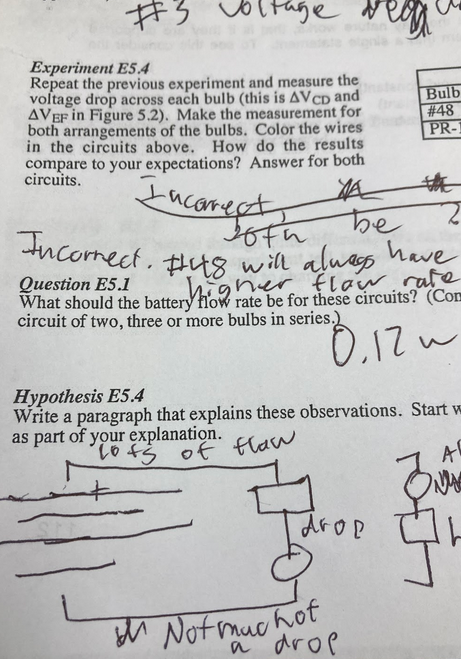 #3 voltage
Experiment E5.4
Repeat the previous experiment and measure the
voltage drop across each bulb (this is ΔVCD and
ΔVEF in Figure 5.2). Make the measurement for
both arrangements of the bulbs. Color the wires
in the circuits above. How do the results
compare to your expectations? Answer for both
circuits.
Bulb
#48
PR-1
Incorrect,
both be 2
Incorrect. #48 will always have
higher flow rate
Question E5.1
What should the battery flow rate be for these circuits? (Con
circuit of two, three or more bulbs in series.)
0.12
Hypothesis E5.4
Write a paragraph that explains these observations. Start w
as part of your explanation.
lots of flow
+
drop
Not much of
a drop